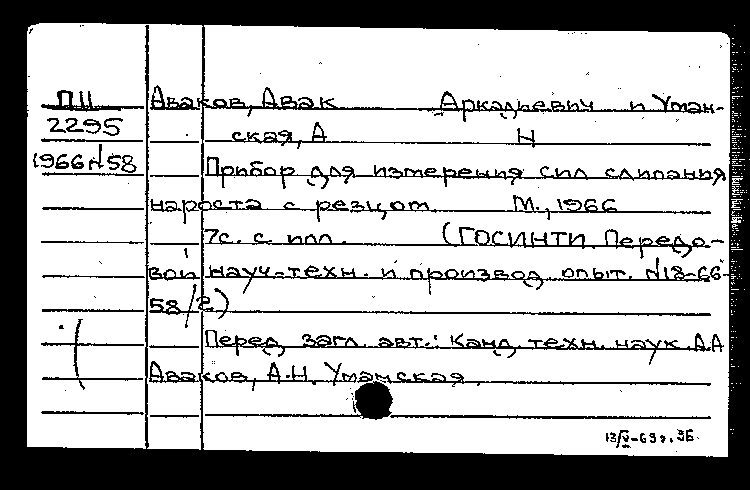 ПII Аваков, Авак Аркадьевич и Уман-
2295 ская, А Н
1966 №58 Прибор для измерения сил слипания
нароста с резцом. М., 1966
7с. с илл. (ГОСИНТИ. Передо-
вой науч-техн. и производ. опыт. №18-66-
58/2)
Перед загл. авт.: Канд. техн. наук А.А
Аваков, А.Н. Уманская.
13/V-69г. ЗБ